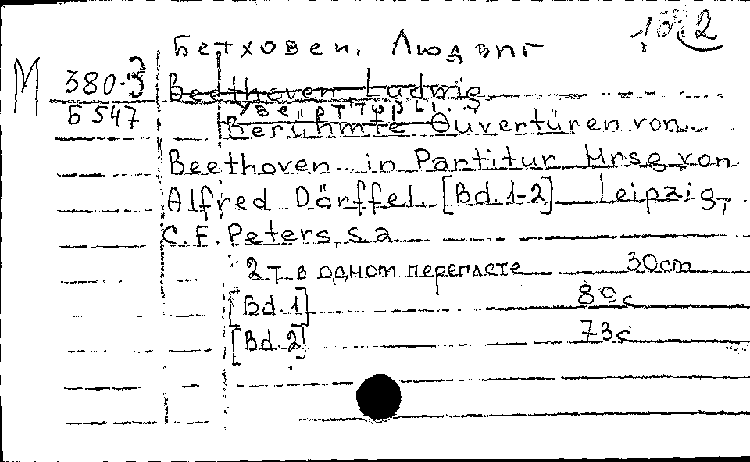 Бетховен, Людвиг
М 380-3 Beethoven Ludwig
Б 547 Увертюры.
Berühmte Ouvertüren von
Beethoven in Partitur Hrsg von
Alfred Dörffel [Bd. 1-2] Leipzig,
C. F. Peters, s.a
2 т. в одном переплете 30cm
[Bd. 1] 89с
[Bd. 2] 73с